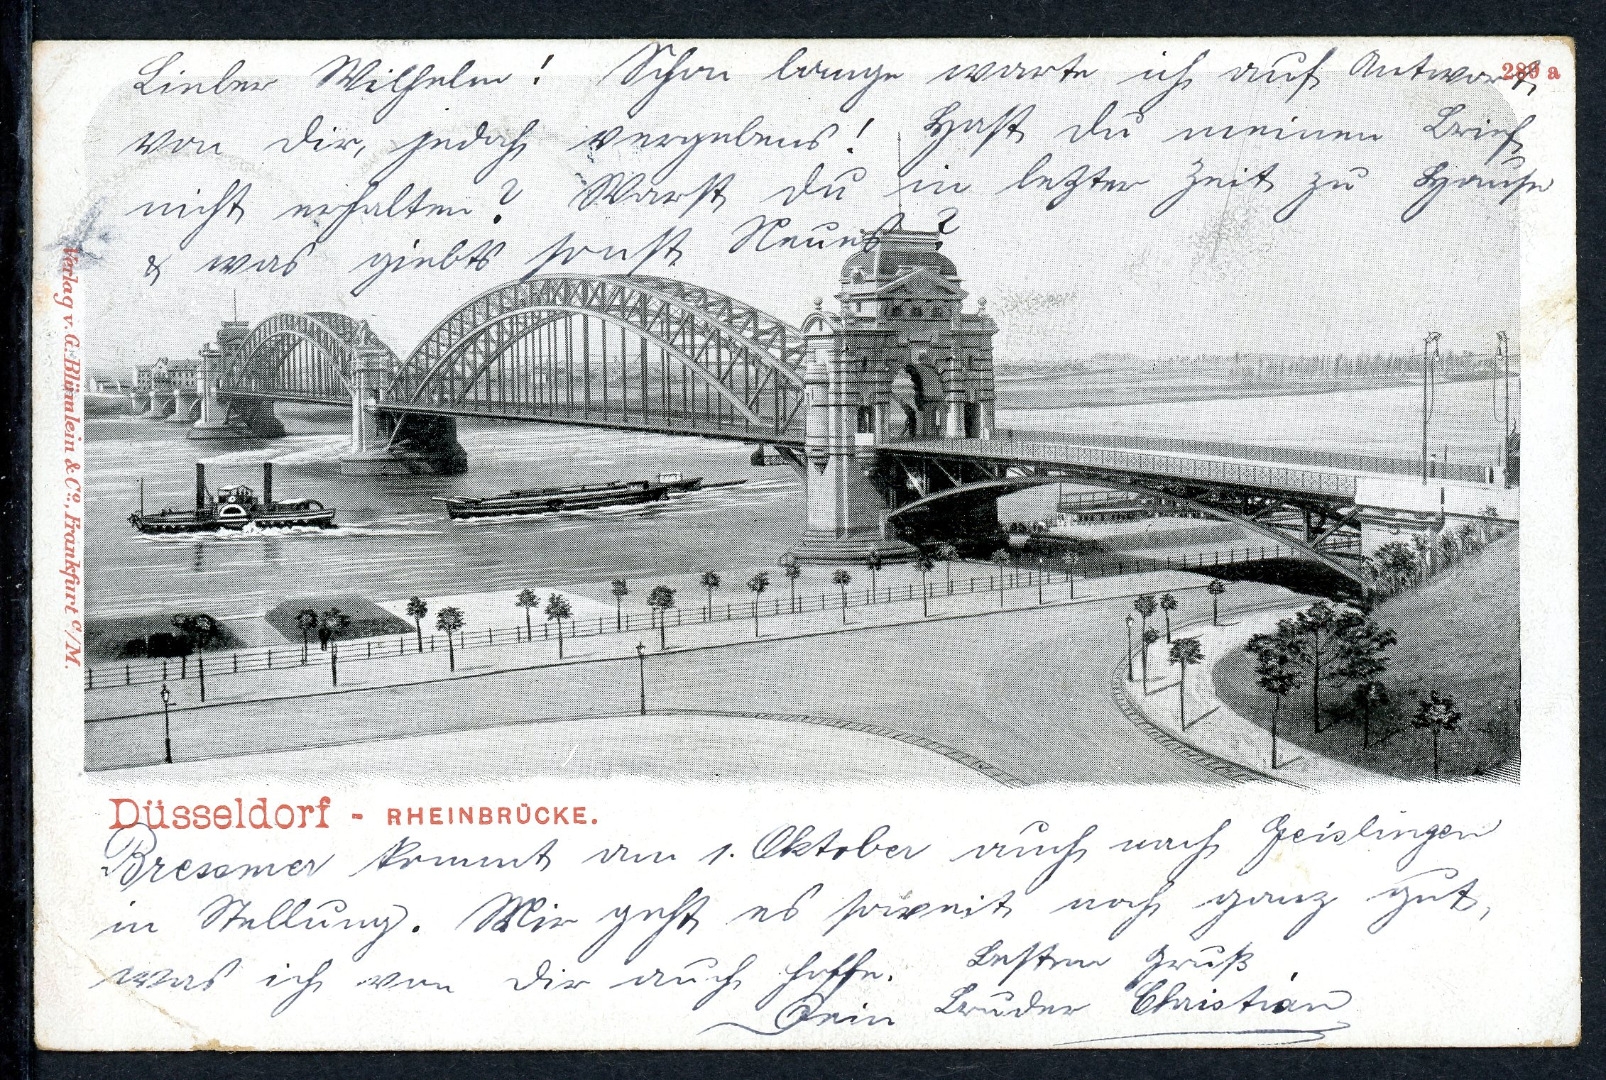 Lieber Wilhelm! Schon lange warte ich auf Antwort,
289 a
von Dir, jedoch vergebens! Hast Du meinen Brief
nicht erhalten? Warst Du in letzter Zeit zu Hause
& was giebts sonst Neues?
Verlag v. G. Blümlein & Co., Frankfurt a/M.
Düsseldorf - RHEINBRÜCKE.
kommt am 1. Oktober auch nach Geislingen
in Stellung. Mir geht es soweit noch ganz gut,
was ich von Dir auch hoffe. Besten Gruß
Dein Bruder Christian